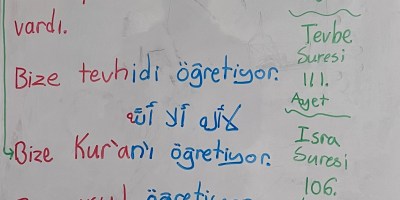 vardı.
Bize tevhidi öğretiyor.
لا إله ألا ألله
Bize Kur'an'ı öğretiyor.
öğretiyor
Tevbe
Suresi
111.
Ayet
Isra
Suresi
106.